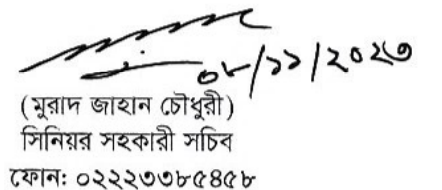 ০৮/১১/২০২৩
(মুরাদ জাহান চৌধুরী)
সিনিয়র সহকারী সচিব
ফোন: ০২২২৩৩৮৫৪৫৮